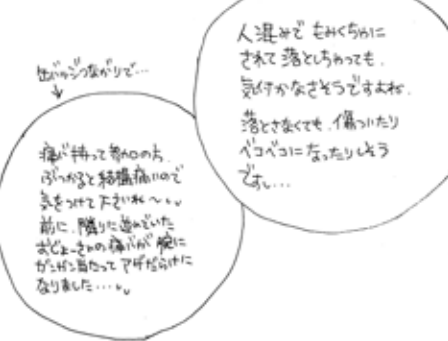 人混みで もみくちゃに
されて落としちゃっても、
気付かなさそうですよね。
落とさなくても、傷ついたり
ベコベコになったりしそう
です…
缶バッジつながりで…
痛バ持って参加の方、
ぶつかると結構痛いので
気をつけて下さいね〜
前に、隣りに並んでいた
おじょーさんの痛バが腕に
ガンガン当たってアザだらけに
なりました…